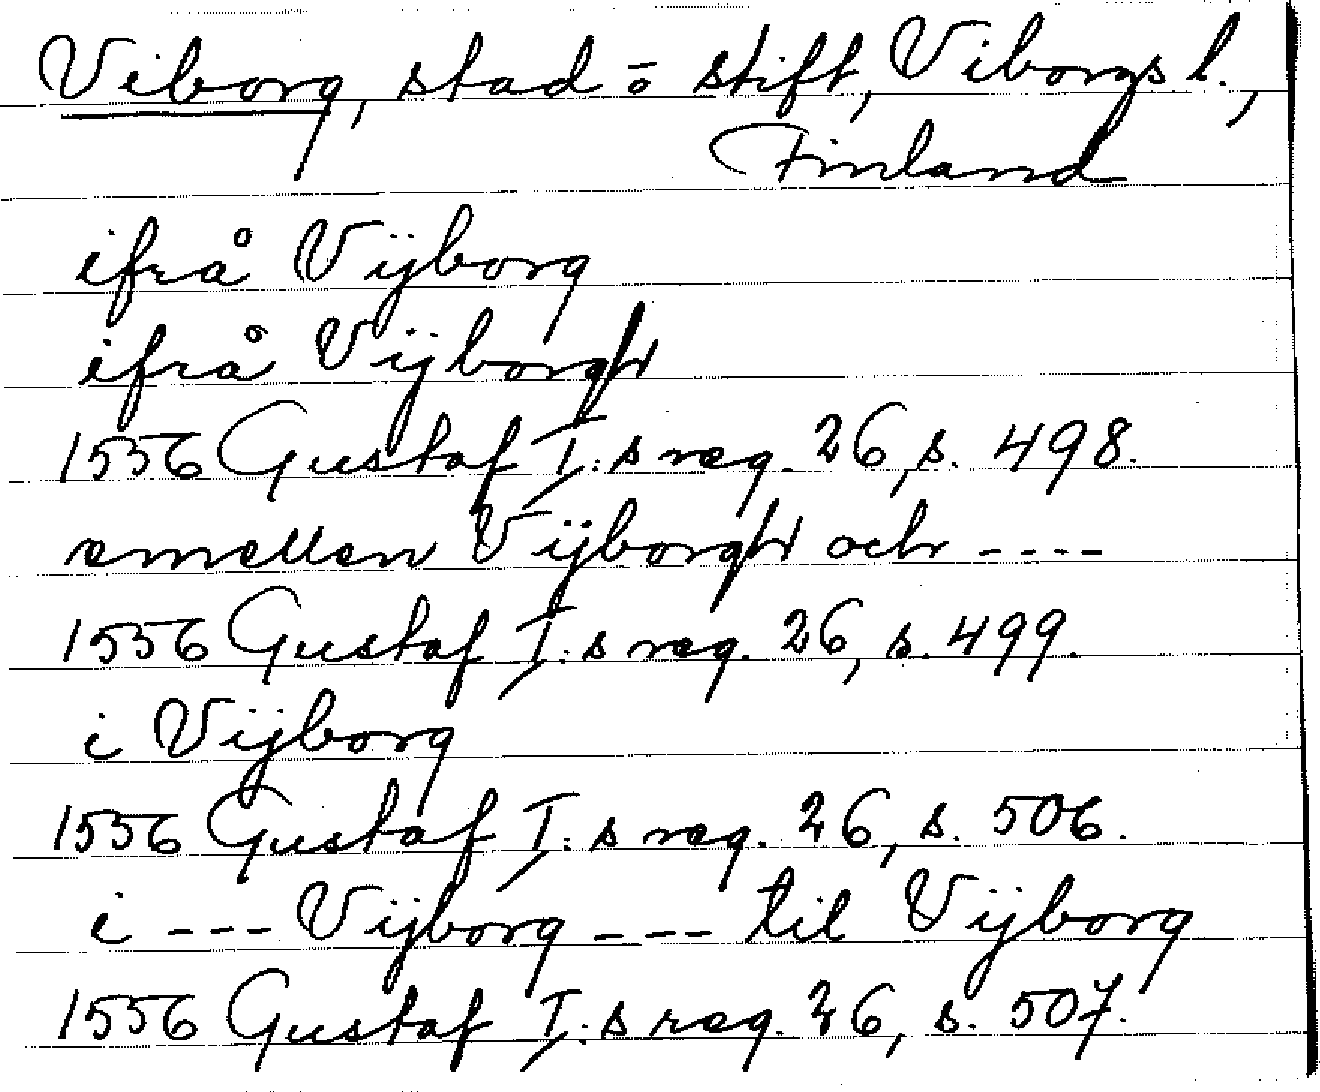 Viborg, stad o stift, Viborgs l.,
Finland
ifrå Vijborg
ifrå Vijborgh
1556 Gustaf I:s reg. 26, s. 498.
emellen Vijborgh och ----
1556 Gustaf I:s reg. 26, s. 499.
i Vijborg
1556 Gustaf I:s reg. 26, s. 506.
i --- Vijborg --- til Vijborg
1556 Gustaf I:s reg. 26, s. 507.